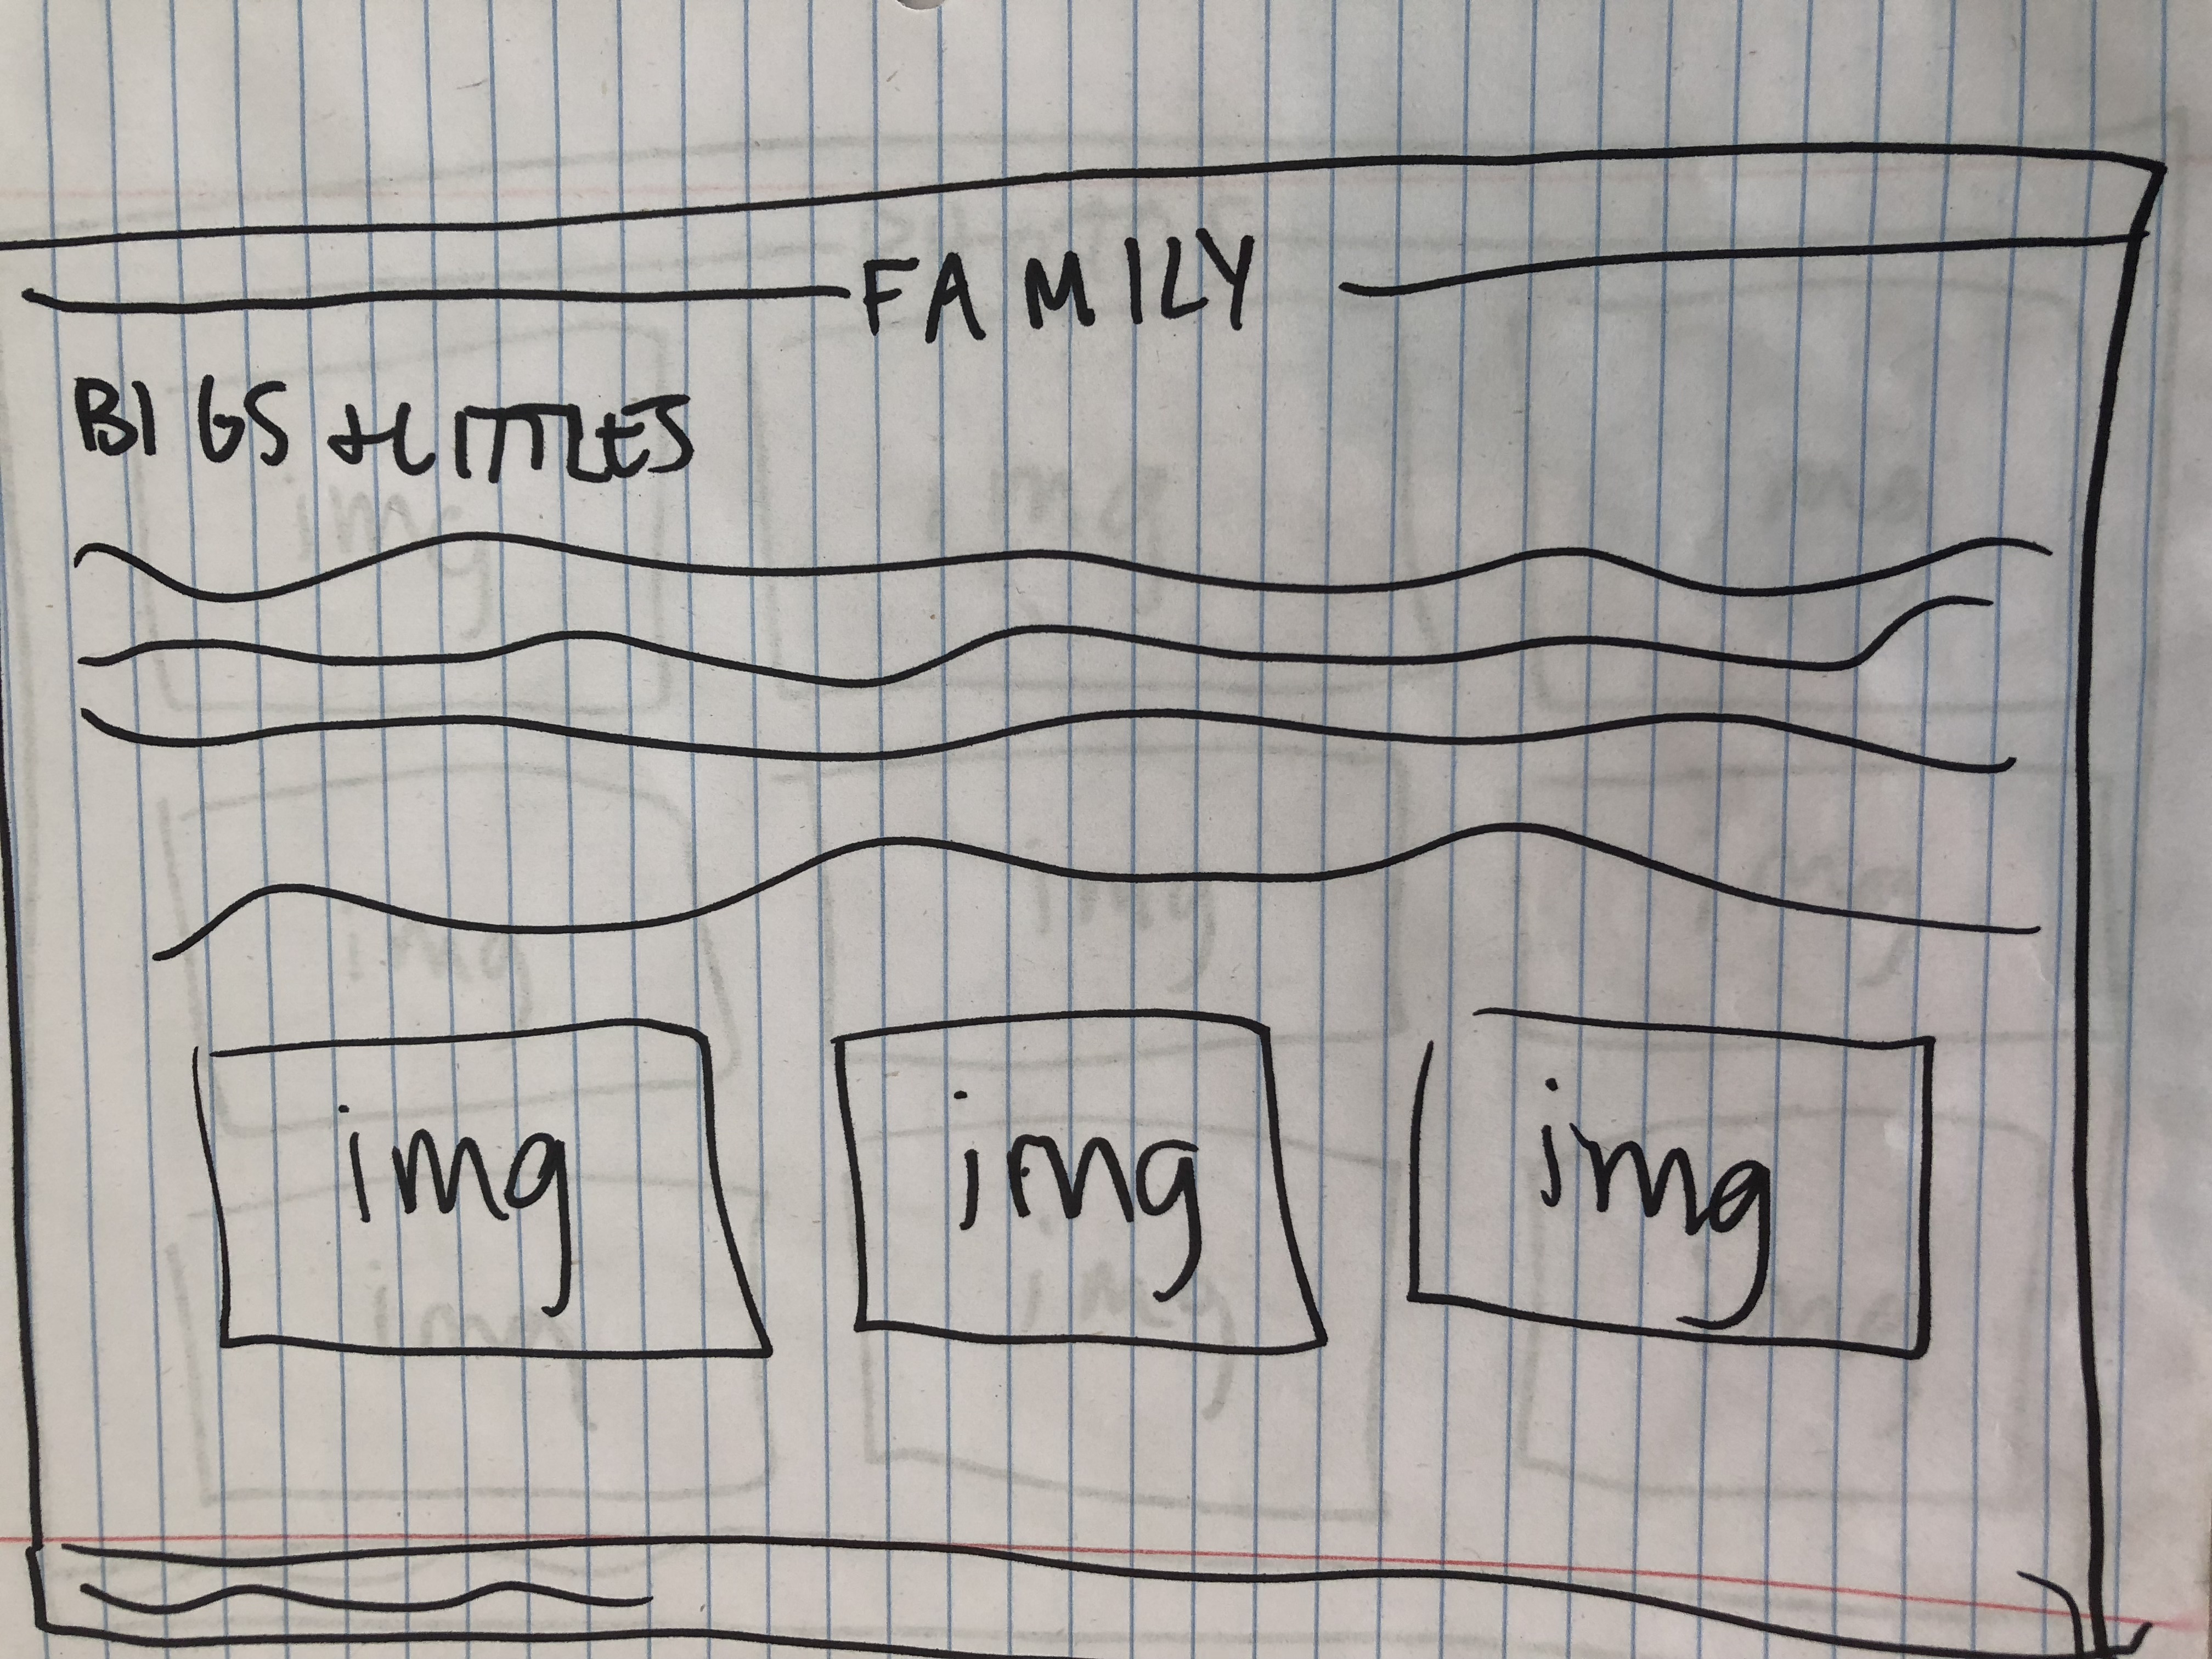 FAMILY
BIGS + LITTLES
img img img